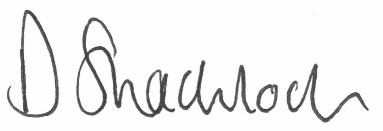 D Shacklock